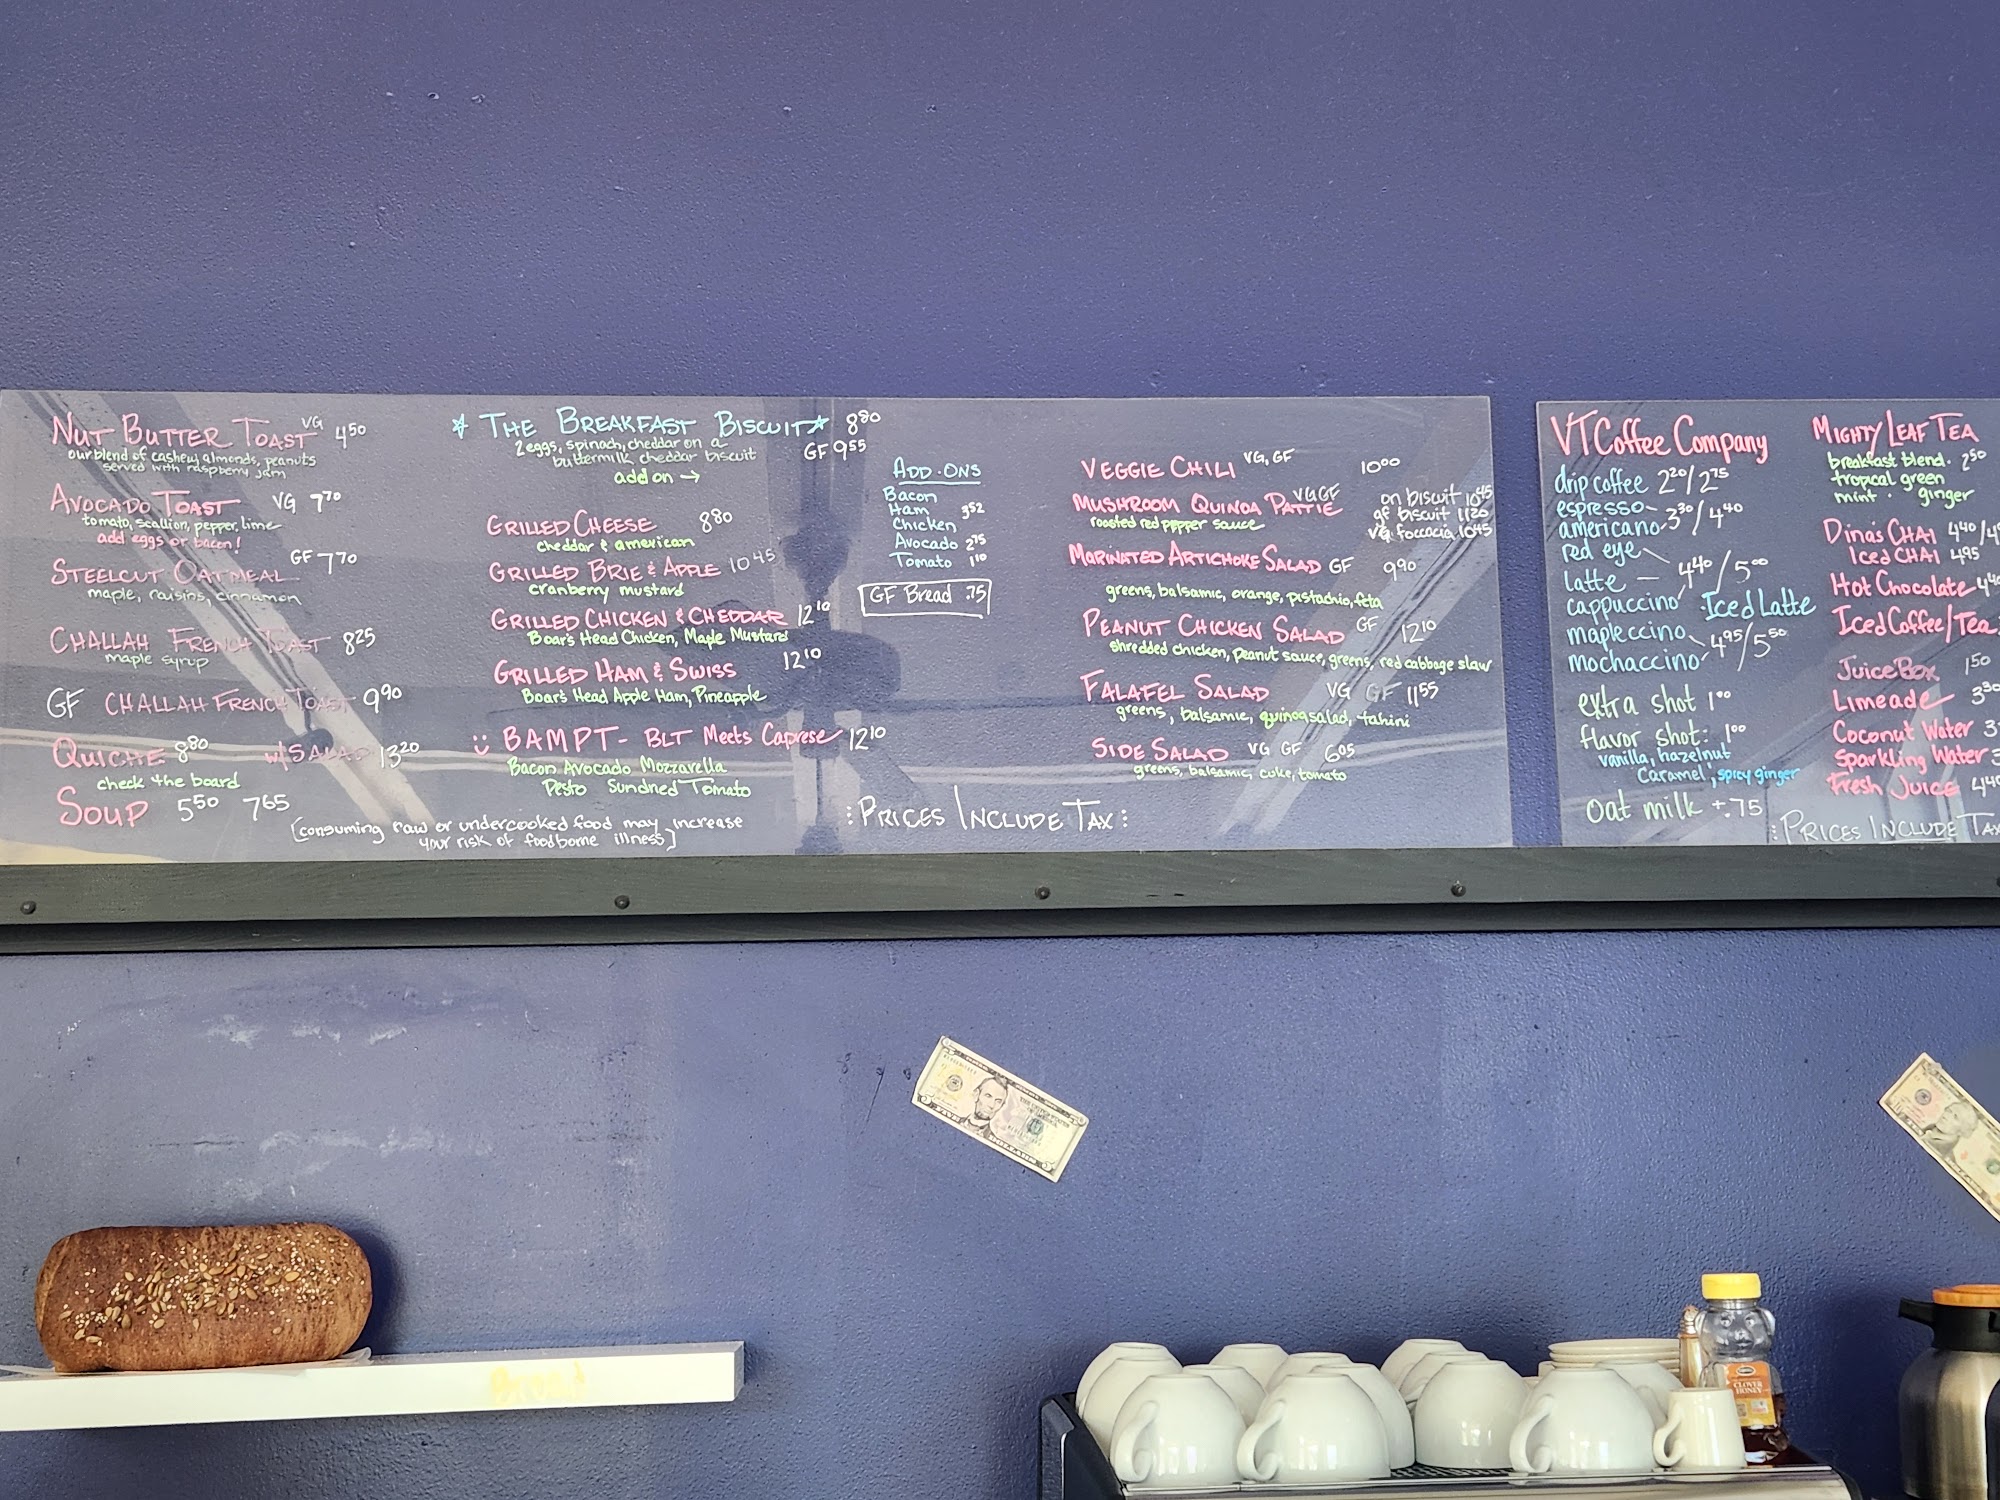 NUT BUTTER TOAST VG 4.50
our blend of cashew, almonds, peanuts
served with raspberry jam
AVOCADO TOAST VG 7.70
tomato, scallion, pepper, lime
add eggs or bacon!
STEELCUT OATMEAL GF 7.70
maple, raisins, cinnamon
CHALLAH FRENCH TOAST 8.25
maple syrup
GF CHALLAH FRENCH TOAST 9.90
QUICHE 8.80 w/ SALAD 13.20
check the board
SOUP 5.50 7.65
[consuming raw or undercooked food may increase
your risk of foodborne illness]
THE BREAKFAST BISCUIT 8.80
2 eggs, spinach, cheddar on a
buttermilk cheddar biscuit GF 9.55
add on →
GRILLED CHEESE 8.80
cheddar & american
GRILLED BRIE & APPLE 10.45
cranberry mustard
GRILLED CHICKEN & CHEDDAR 12.10
Boar's Head Chicken, Maple Mustard
GRILLED HAM & SWISS 12.10
Boar's Head Apple Ham, Pineapple
BAMPT - BLT Meets Caprese 12.10
Bacon Avocado Mozzarella
Pesto Sundried Tomato
ADD-ONS
Bacon
Ham 3.52
Chicken
Avocado 2.75
Tomato 1.10
GF Bread .75
PRICES INCLUDE TAX
VEGGIE CHILI VG, GF 10.00
MUSHROOM QUINOA PATTIE VG GF on biscuit 10.45
roasted red pepper sauce gf biscuit 11.20
VG foccacia 10.45
MARINATED ARTICHOKE SALAD GF 9.90
greens, balsamic, orange, pistachio, feta
PEANUT CHICKEN SALAD GF 12.10
shredded chicken, peanut sauce, greens, red cabbage slaw
FALAFEL SALAD VG GF 11.55
greens, balsamic, quinoa salad, tahini
SIDE SALAD VG GF 6.05
greens, balsamic, cuke, tomato
VT Coffee Company
drip coffee 2.20/2.75
espresso
americano 3.30/4.40
red eye
latte 4.40/5.00
cappuccino Iced Latte
mapleccino 4.95/5.50
mochaccino
extra shot 1.00
flavor shot: 1.00
vanilla, hazelnut
caramel, spicy ginger
oat milk +.75
PRICES INCLUDE TAX
MIGHTY LEAF TEA
breakfast blend 2.50
tropical green
mint · ginger
Dina's CHAI 4.40/
Iced CHAI 4.95
Hot Chocolate
Iced Coffee/Tea
JuiceBox 1.50
Limeade 3.30
Coconut Water
Sparkling Water
Fresh Juice
CLOVER
HONEY